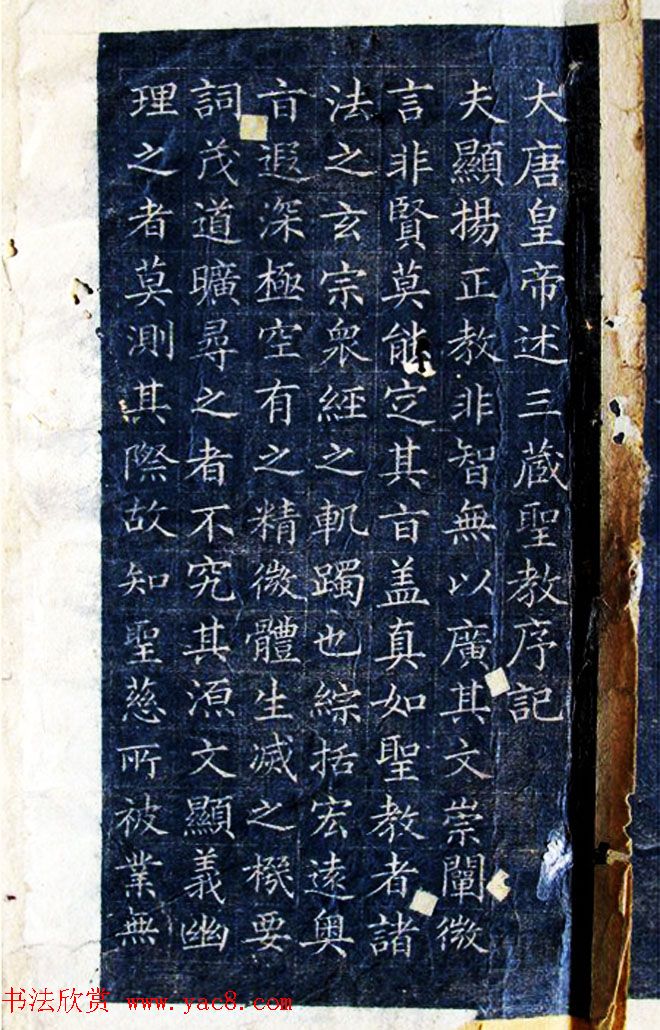 大唐皇帝述三藏聖教序記
夫顯揚正教非智無以廣其文崇闡微
言非賢莫能定其盲盖真如聖教者諸
法之玄宗衆經之軏躅也綜括宏遠奥
盲遐深極空有之精微體生滅之機要
詞茂道曠尋之者不究其源文顯義幽
理之者莫測其際故知聖慈所被業無
书法欣赏 www.yac8.com